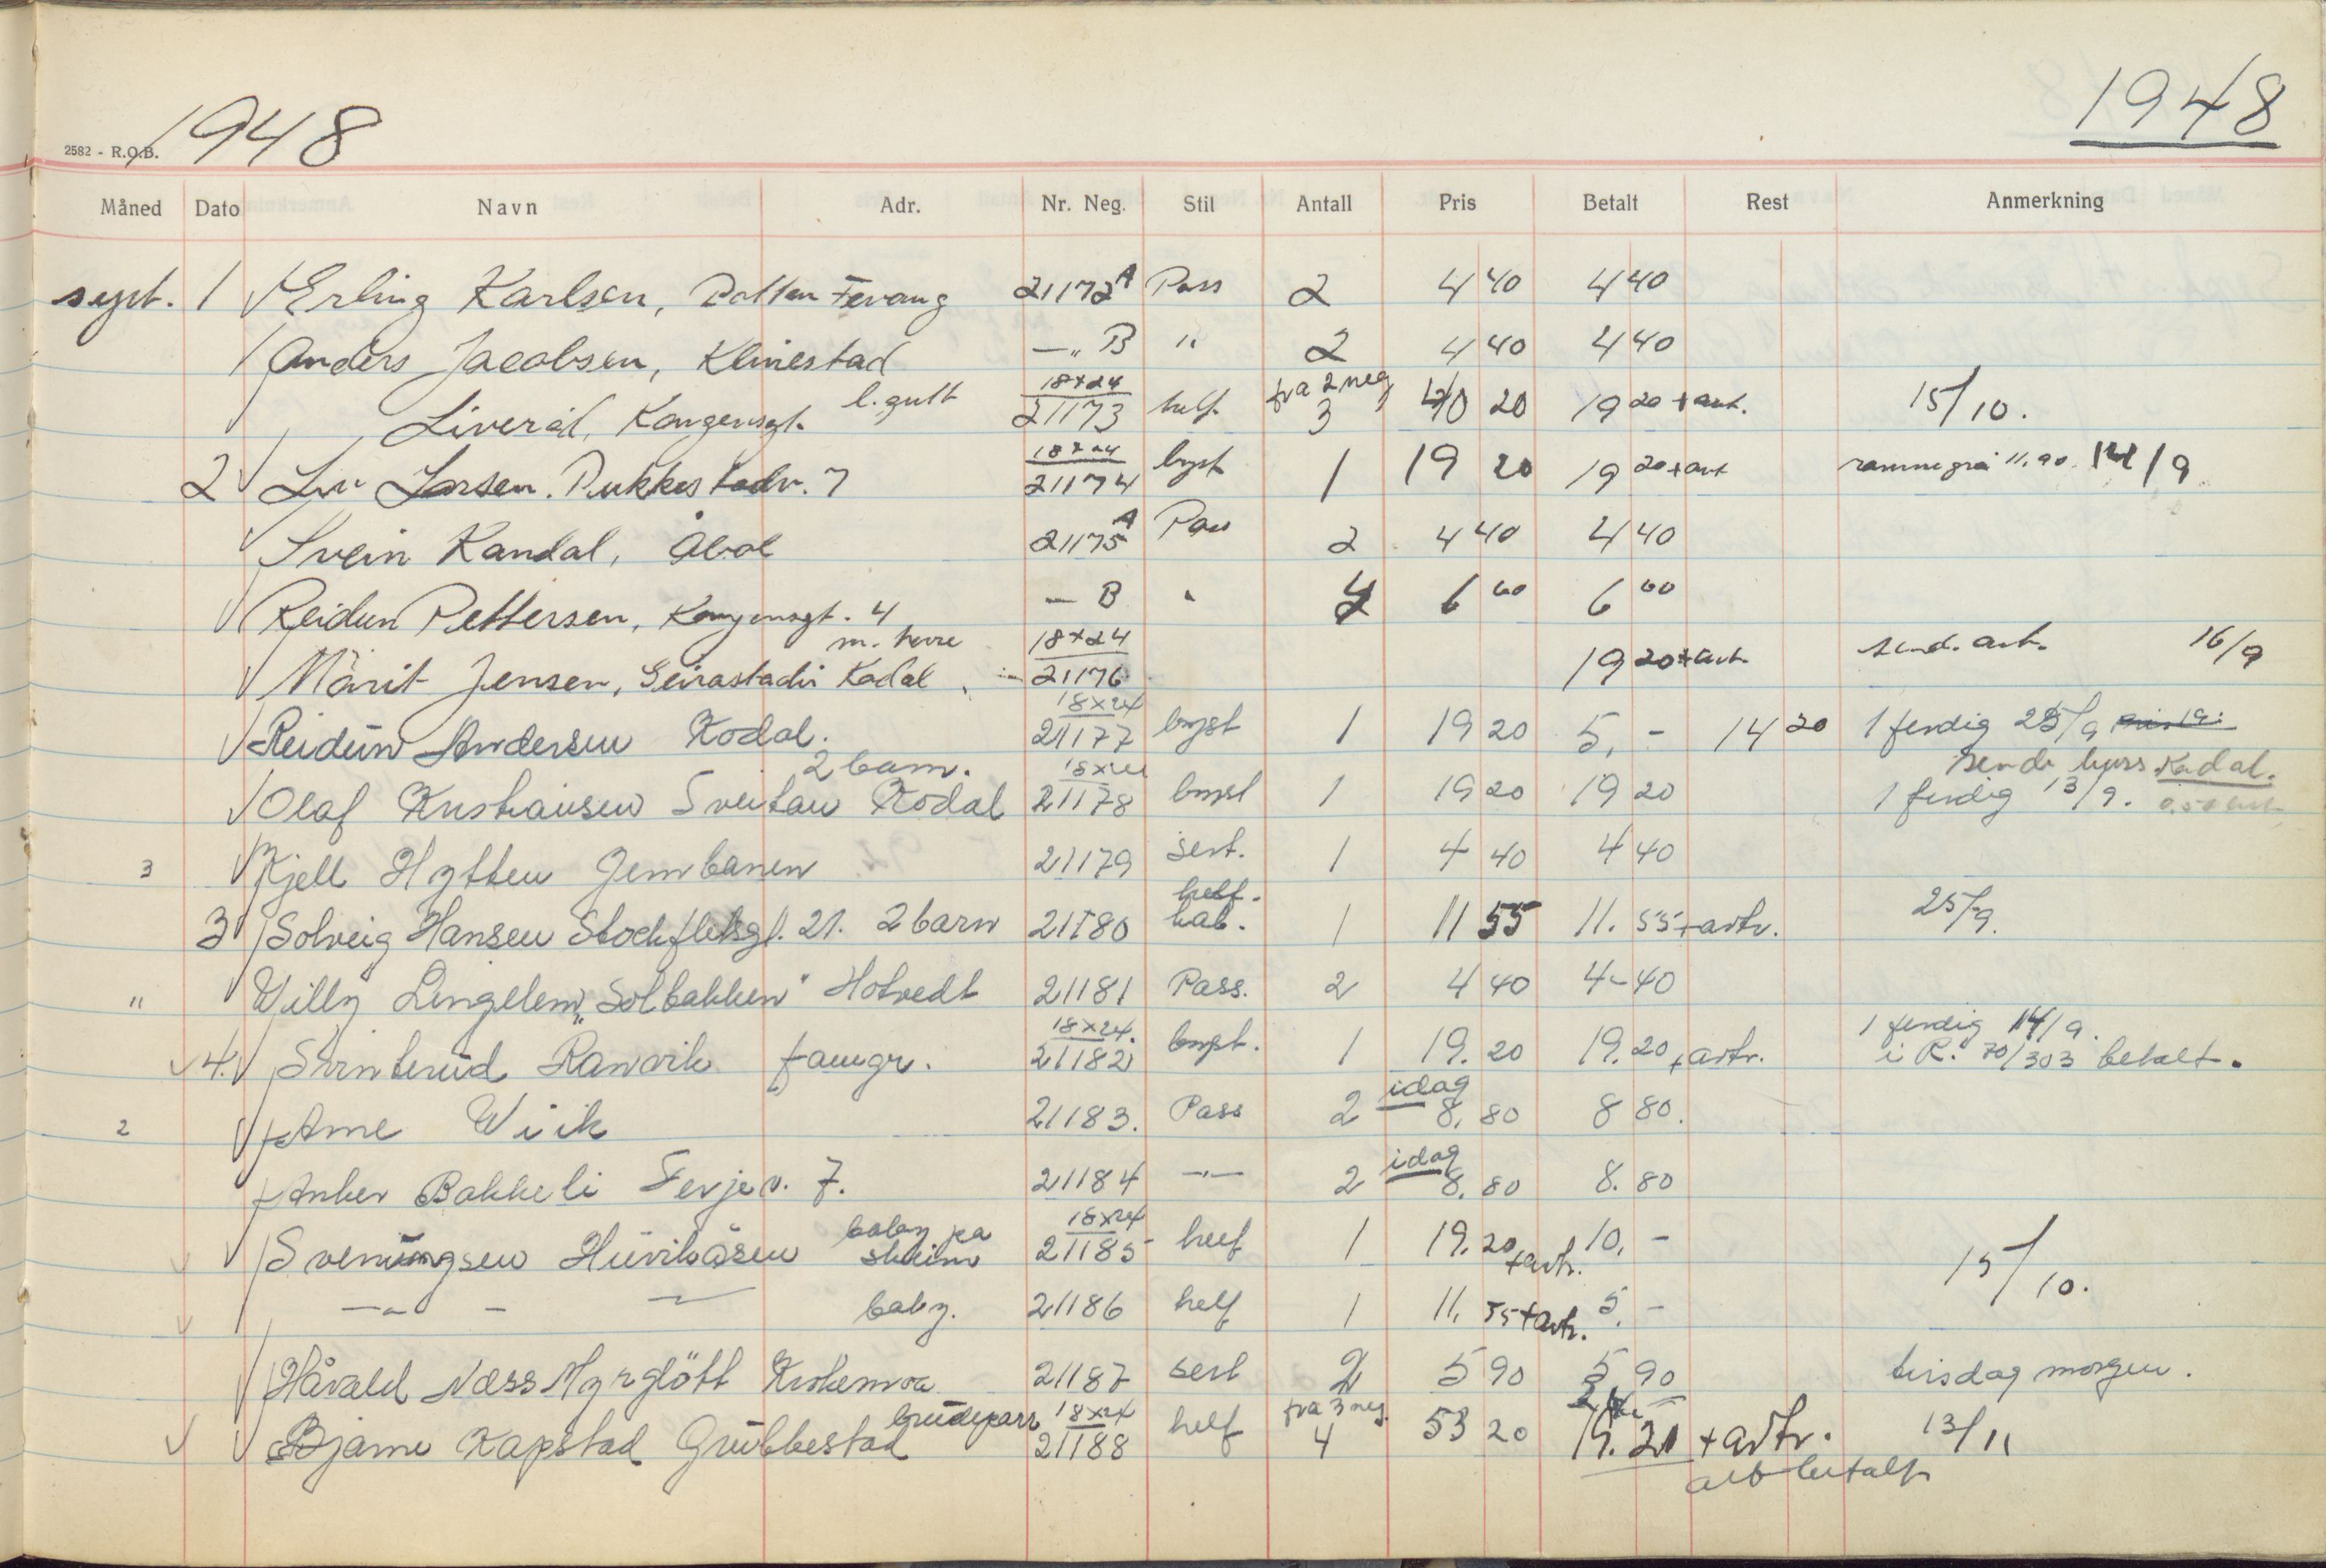 1948
1948
2582 - R.O.B.
Måned Dato Navn Adr. Nr. Neg. Stil Antall Pris Betalt Rest Anmerkning
sept. 1 Erling Karlsen, Fevang 21172 A Pass 2 4 40 4 40
Anders Jacobsen, Klinestad —„ B " 2 4 40 4 40
l. gutt 18x24 fra 2 neg
Liverød, Kongensgt. 21173 helf. 3 40 20 19 20 + avt. 15/10.
18x24
2 Liv Larsen. Pukkestadv. 7 21174 byst 1 19 20 19 20 + avt 11.90 /9
Svein Kandal, 21175 A Pass 2 4 40 4 40
Reidun Pettersen, Kongensgt. 4 — B " 6 60 6 60
m. herre 18x24
Marit Jensen, Kodal 21176 19 20 + avt. send. avt. 16/9
18x24
Reidun Andersen Kodal. 21177 byst 1 19 20 5,- 14 20 1 ferdig 25/9
2 barn. 18x24 sende buss Kodal.
Olaf Kristiansen Kodal 21178 byst 1 19 20 19 20 1 ferdig 13/9.
3 Kjell Hytten Jernbanen 21179 sert. 1 4 40 4 40
helf.
3 Solveig Hansen Stockfletsgt. 21. 2 barn 21180 kab. 1 11 55 11. 55 + avtr. 25/9.
" Willy Lingelem „Solbakken" Hotvedt 21181 Pass. 2 4 40 4-40
18x24. 1 ferdig 14/9.
4. Ranvik famgr. 21182 byst. 1 19. 20 19. 20 + avtr. i R. 70/303 betalt.
idag
2 Arne Wiik 21183. Pass 2 8, 80 8 80.
idag
Anker Bakkeli Ferjev. 7. 21184 —"— 2 8. 80 8. 80
baby på 18x24
Svenungsen skinn 21185 helf 1 19. 20 + avtr. 10,-
—"— baby. 21186 helf 1 11, 55 + avtr. 5,- 15/10.
Håvald Næss 21187 sert 2 5 90 5 90 tirsdag morgen.
brudepar 18x24 fra 3 neg.
Bjarne Kapstad 21188 helf 4 53 20 + avtr. 13/11